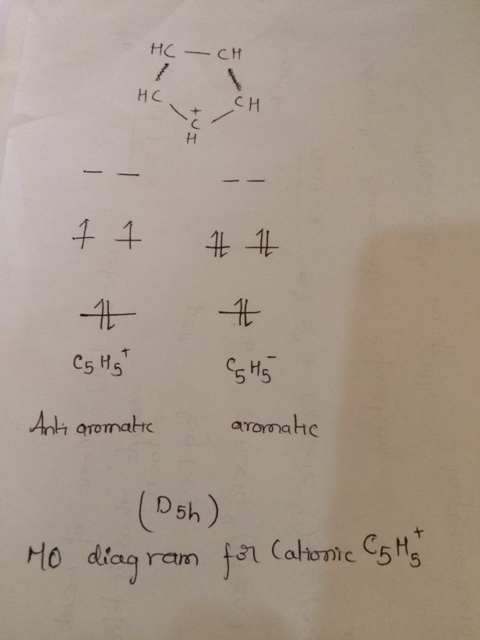 HC — CH
HC CH
+
C
H
C5H5+ C5H5-
Anti aromatic aromatic
(D5h)
MO diagram for Cationic C5H5+